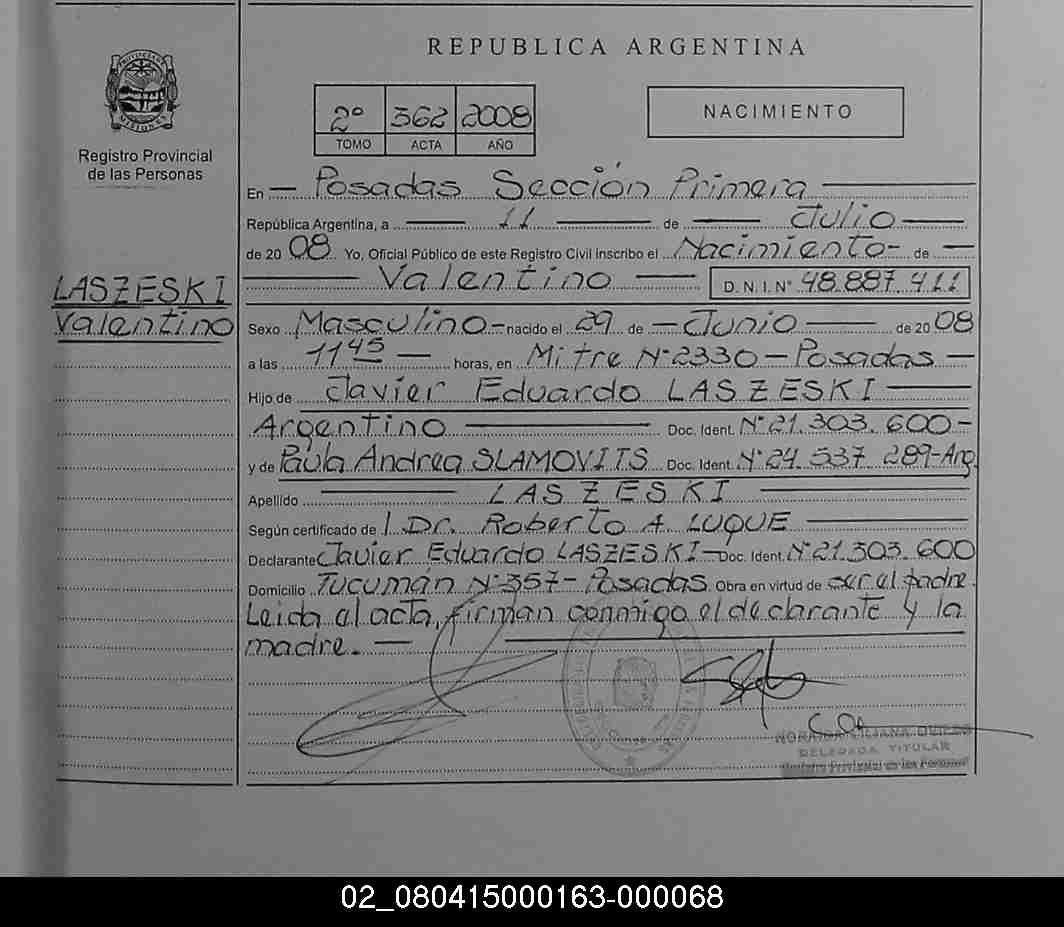 REPUBLICA ARGENTINA
PROVINCIA DE MISIONES
Registro Provincial
de las Personas
2° 362 2008
TOMO ACTA AÑO
NACIMIENTO
En Posadas Sección Primera
República Argentina, a 11 de Julio
de 2008 Yo, Oficial Público de este Registro Civil inscribo el Nacimiento de
Valentino D.N.I. N° 48.887.411
LASZESKI
Valentino
Sexo Masculino - nacido el 29 de Junio de 2008
a las 11 45 horas, en Mitre N° 2330 - Posadas
Hijo de Javier Eduardo LASZESKI
Argentino Doc. Ident. N° 21.303.600
y de Paula Andrea SLAMOVITS Doc. Ident. N° 24.537.289 - Arg.
Apellido LASZESKI
Según certificado de l Dr. Roberto A LUQUE
Declarante Javier Eduardo LASZESKI - Doc. Ident. N° 21.303.600
Domicilio Tucumán N° 357 - Posadas Obra en virtud de ser el padre.
Leida al acta, firman conmigo el declarante y la
madre.
LILIANA
DELEGADA TITULAR
Registro Provincial de las Personas
02_080415000163-000068